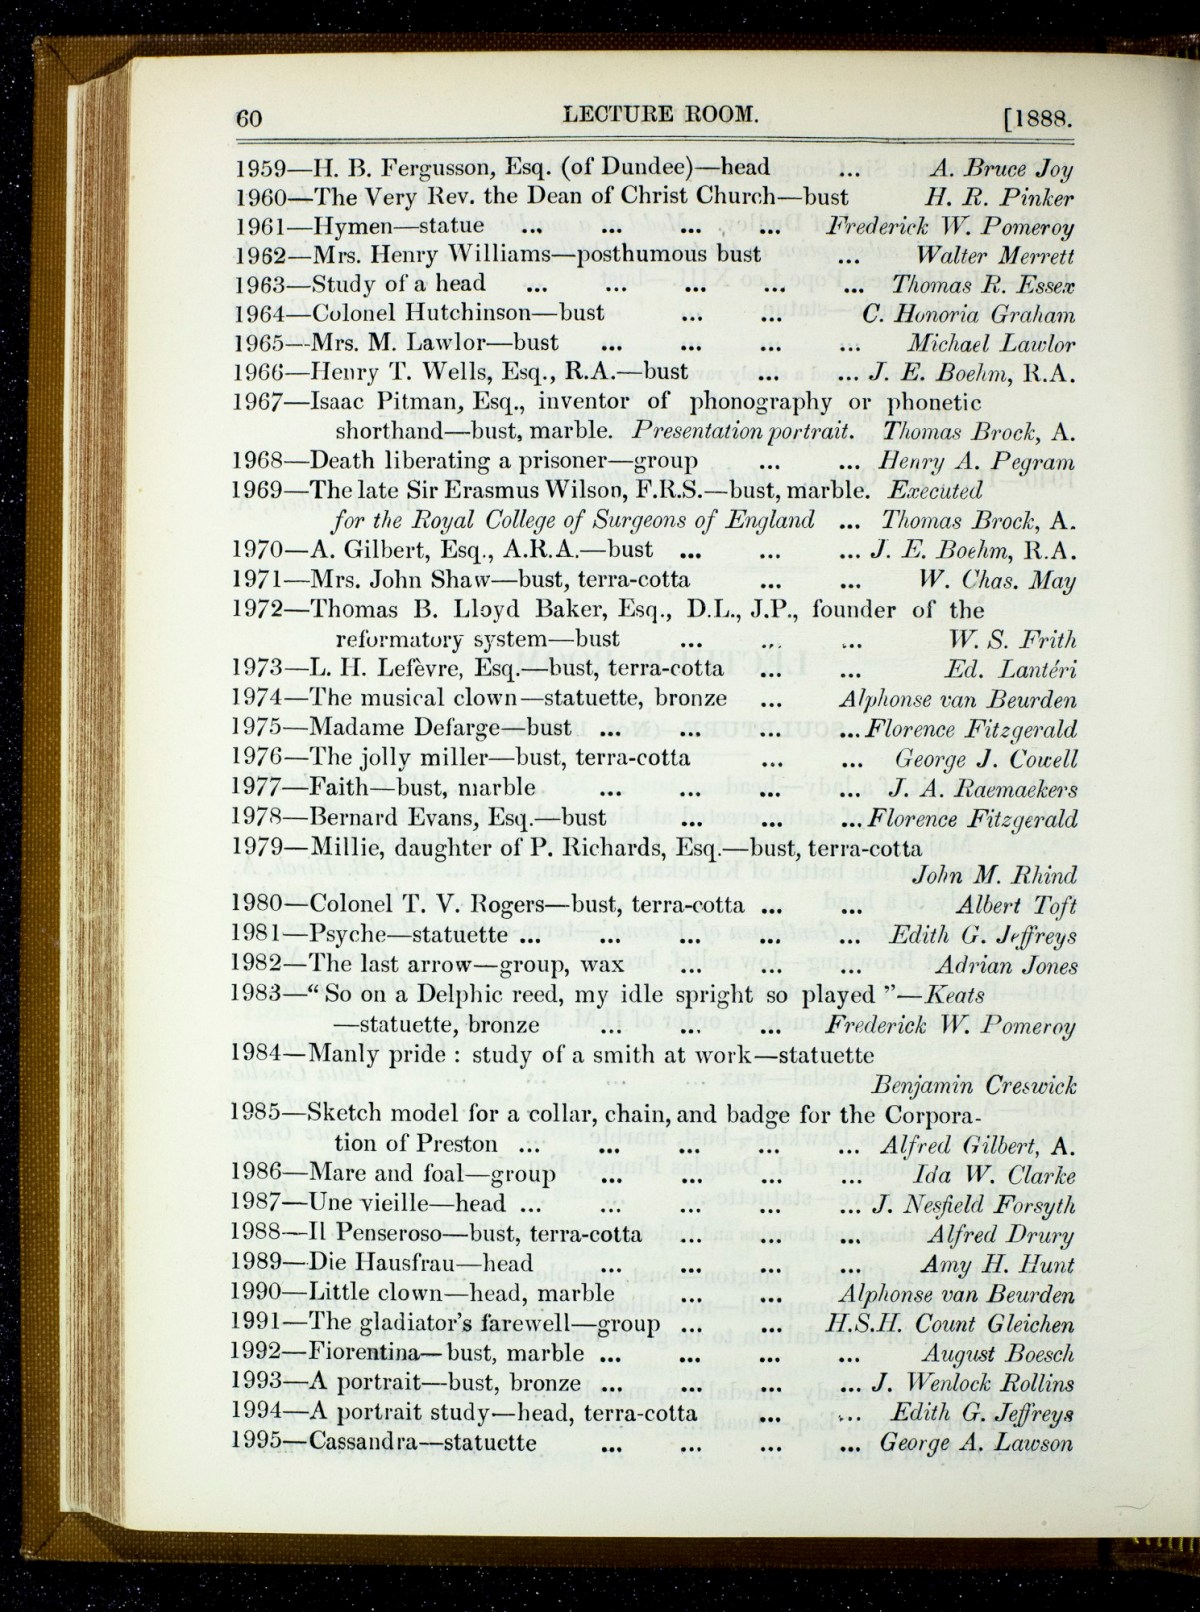 60 LECTURE ROOM. [1888.
1959—H. B. Fergusson, Esq. (of Dundee)—head ... A. Bruce Joy
1960—The Very Rev. the Dean of Christ Church—bust H. R. Pinker
1961—Hymen—statue ... ... ... ... Frederick W. Pomeroy
1962—Mrs. Henry Williams—posthumous bust ... Walter Merrett
1963—Study of a head ... ... ... ... ... Thomas R. Essex
1964—Colonel Hutchinson—bust ... ... C. Honoria Graham
1965—Mrs. M. Lawlor—bust ... ... ... ... Michael Lawlor
1966—Henry T. Wells, Esq., R.A.—bust ... ... J. E. Boehm, R.A.
1967—Isaac Pitman, Esq., inventor of phonography or phonetic
shorthand—bust, marble. Presentation portrait. Thomas Brock, A.
1968—Death liberating a prisoner—group ... ... Henry A. Pegram
1969—The late Sir Erasmus Wilson, F.R.S.—bust, marble. Executed
for the Royal College of Surgeons of England ... Thomas Brock, A.
1970—A. Gilbert, Esq., A.R.A.—bust ... ... ... J. E. Boehm, R.A.
1971—Mrs. John Shaw—bust, terra-cotta ... ... W. Chas. May
1972—Thomas B. Lloyd Baker, Esq., D.L., J.P., founder of the
reformatory system—bust ... ... ... W. S. Frith
1973—L. H. Lefèvre, Esq.—bust, terra-cotta ... ... Ed. Lantéri
1974—The musical clown—statuette, bronze ... Alphonse van Beurden
1975—Madame Defarge—bust ... ... ... ... Florence Fitzgerald
1976—The jolly miller—bust, terra-cotta ... ... George J. Cowell
1977—Faith—bust, marble ... ... ... ... J. A. Raemaekers
1978—Bernard Evans, Esq.—bust ... ... ... Florence Fitzgerald
1979—Millie, daughter of P. Richards, Esq.—bust, terra-cotta
John M. Rhind
1980—Colonel T. V. Rogers—bust, terra-cotta ... ... Albert Toft
1981—Psyche—statuette ... ... ... ... ... Edith G. Jeffreys
1982—The last arrow—group, wax ... ... ... Adrian Jones
1983—“ So on a Delphic reed, my idle spright so played ”—Keats
—statuette, bronze ... ... ... Frederick W. Pomeroy
1984—Manly pride : study of a smith at work—statuette
Benjamin Creswick
1985—Sketch model for a collar, chain, and badge for the Corpora-
tion of Preston ... ... ... ... ... Alfred Gilbert, A.
1986—Mare and foal—group ... ... ... ... Ida W. Clarke
1987—Une vieille—head ... ... ... ... ... J. Nesfield Forsyth
1988—Il Penseroso—bust, terra-cotta ... ... ... Alfred Drury
1989—Die Hausfrau—head ... ... ... ... Amy H. Hunt
1990—Little clown—head, marble ... ... Alphonse van Beurden
1991—The gladiator's farewell—group ... ... H.S.H. Count Gleichen
1992—Fiorentina—bust, marble ... ... ... ... August Boesch
1993—A portrait—bust, bronze ... ... ... ... J. Wenlock Rollins
1994—A portrait study—head, terra-cotta ... ... Edith G. Jeffreys
1995—Cassandra—statuette ... ... ... ... George A. Lawson